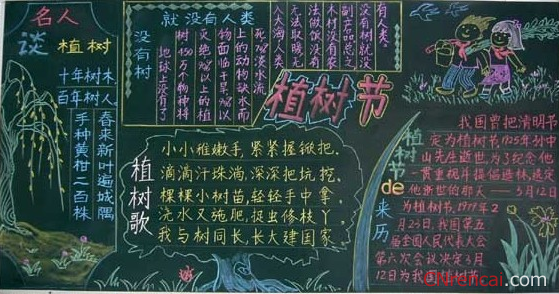 名人
谈
植树
十年树木,
百年树人。
春来新叶遍城隅
手种黄柑二百株
就没有人类
没有树
有人类。
没有树就没
副产品总之
木材没有农
法做饭没有
无法取暖无
入大海人类
死%淡水流
上的动物缺水而
物面临干旱%以
灭绝%以上的植
树450万个物种将
地球上没有了
植树节
植树歌
小小稚嫩手,紧紧握锨把,
滴滴汗珠淌,深深把坑挖,
棵棵小树苗,轻轻手中拿,
浇水又施肥,捉虫修枝丫,
我与树同长,长大建国家
植树节de来历
我国曾把清明节
定为植树节1925年孙中
山先生逝世,为了纪念他
一贯重视并提倡造林,遂定
他逝世的那天——3月12日
为植树节,1979年2
月23日,我国第五
届全国人民代表大会
第六次会议决定3月
12日为我国植树节
CNrencai.com